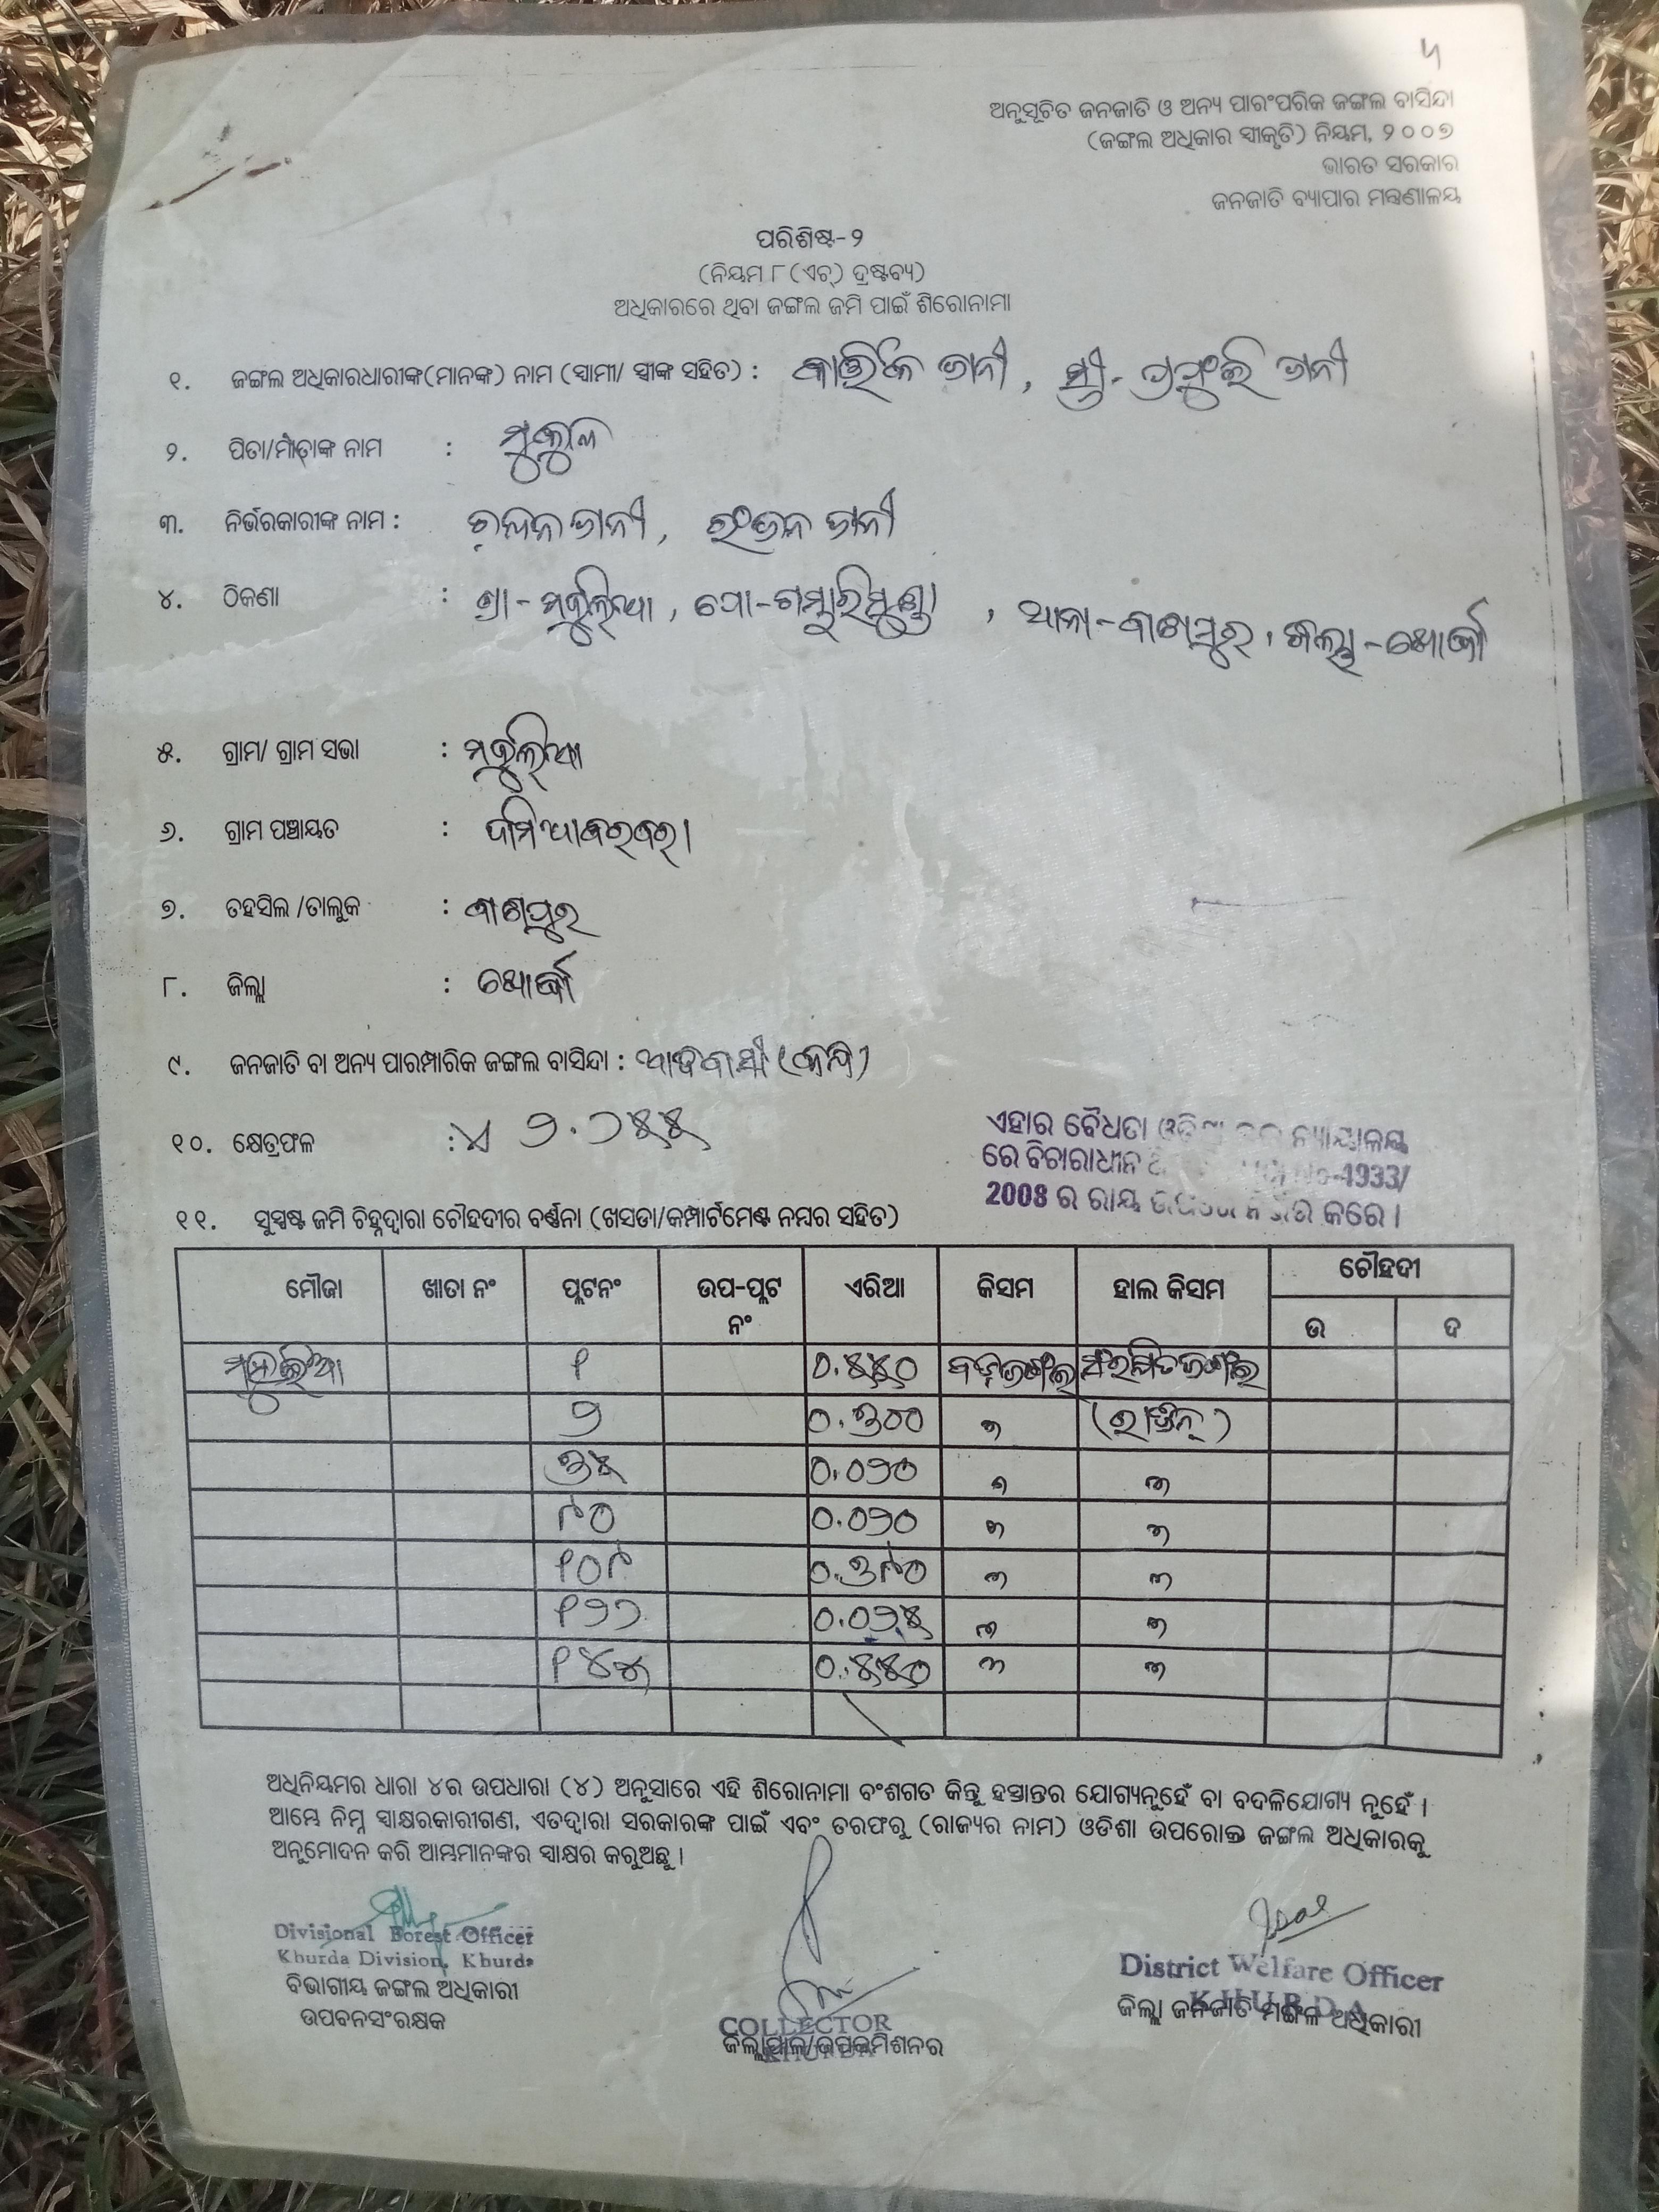 ୳
ଅନୁସୂଚିତ ଜନଜାତି ଓ ଅନ୍ୟ ପାରଂପରିକ ଜଙ୍ଗଲ ବାସିନ୍ଦା
(ଜଙ୍ଗଲ ଅଧିକାର ସ୍ୱୀକୃତି) ନିୟମ, ୨୦୦୭
ଭାରତ ସରକାର
ଜନଜାତି ବ୍ୟାପାର ମନ୍ତ୍ରଣାଳୟ
ପରିଶିଷ୍ଟ-୨
(ନିୟମ ୮ (ଏଚ୍) ଦ୍ରଷ୍ଟବ୍ୟ)
ଅଧିକାରରେ ଥିବା ଜଙ୍ଗଲ ଜମି ପାଇଁ ଶିରୋନାମା
୧. ଜଙ୍ଗଲ ଅଧିକାରଧାରୀଙ୍କ(ମାନଙ୍କ) ନାମ (ସ୍ୱାମୀ/ ସ୍ତ୍ରୀଙ୍କ ସହିତ) : କାର୍ତ୍ତିକ ଜାନୀ, ସ୍ତ୍ରୀ- ଜାନୀ
୨. ପିତା/ମାତାଙ୍କ ନାମ : ମୁକୁଳ
୩. ନିର୍ଭରକାରୀଙ୍କ ନାମ : ଚନ୍ଦନ ଜାନୀ, ରଂଜନ ଜାନୀ
୪. ଠିକଣା : ଗ୍ରା- , ପୋ-ଗମ୍ଭାରିମୁଣ୍ଡା, ଥାନା-ବାଣପୁର, ଜିଲ୍ଲା-ଖୋର୍ଦ୍ଧା
୫. ଗ୍ରାମ/ ଗ୍ରାମ ସଭା :
୬. ଗ୍ରାମ ପଞ୍ଚାୟତ : ଦାମିଆବରବରା
୭. ତହସିଲ /ତାଲୁକ : ବାଣପୁର
୮. ଜିଲ୍ଲା : ଖୋର୍ଦ୍ଧା
୯. ଜନଜାତି ବା ଅନ୍ୟ ପାରମ୍ପାରିକ ଜଙ୍ଗଲ ବାସିନ୍ଦା : ଆଦିବାସୀ (କନ୍ଧ)
୧୦. କ୍ଷେତ୍ରଫଳ : ୨.୨୫୫
ଏହାର ବୈଧତା ନ୍ୟାୟାଳୟ
ରେ ବିଚାରାଧୀନ No-4933/
2008 ର ରାୟ ଉପରେ ନିର୍ଭର କରେ ।
୧୧. ସୁସ୍ପଷ୍ଟ ଜମି ଚିହ୍ନଦ୍ୱାରା ଚୌହଦୀର ବର୍ଣ୍ଣନା (ଖସଡା/କମ୍ପାର୍ଟମେଣ୍ଟ ନମ୍ବର ସହିତ)
ମୌଜା ଖାତା ନଂ ପ୍ଲଟନଂ ଉପ-ପ୍ଲଟ ନଂ ଏରିଆ କିସମ ହାଲ କିସମ ଚୌହଦୀ
ଉ ଦ
୧ ୦.୫୫୦ ସଂରକ୍ଷିତ ଜଙ୍ଗଲ
୨ ୦.୩୦୦ "
୩୫ ୦.୦୨୦ " "
୯୦ ୦.୦୨୦ " "
୧୦୯ ୦.୩୯୦ " "
୧୨୨ ୦.୦୨୫ " "
୧୪୫ ୦.୫୫୦ " "
ଅଧିନିୟମର ଧାରା ୪ର ଉପଧାରା (୪) ଅନୁସାରେ ଏହି ଶିରୋନାମା ବଂଶଗତ କିନ୍ତୁ ହସ୍ତାନ୍ତର ଯୋଗ୍ୟନୁହେଁ ବା ବଦଳିଯୋଗ୍ୟ ନୁହେଁ ।
ଆମ୍ଭେ ନିମ୍ନ ସ୍ୱାକ୍ଷରକାରୀଗଣ, ଏତଦ୍ୱାରା ସରକାରଙ୍କ ପାଇଁ ଏବଂ ତରଫରୁ (ରାଜ୍ୟର ନାମ) ଓଡିଶା ଉପରୋକ୍ତ ଜଙ୍ଗଲ ଅଧିକାରକୁ
ଅନୁମୋଦନ କରି ଆମ୍ଭମାନଙ୍କର ସ୍ୱାକ୍ଷର କରୁଅଛୁ ।
Divisional Forest Officer
Khurda Division, Khurda
ବିଭାଗୀୟ ଜଙ୍ଗଲ ଅଧିକାରୀ
ଉପବନସଂରକ୍ଷକ
COLLECTOR
ଜିଲ୍ଲାପାଳ/ଉପକମିଶନର
District Welfare Officer
KHURDA
ଜିଲ୍ଲା ଜନଜାତି ମଙ୍ଗଳ ଅଧିକାରୀ